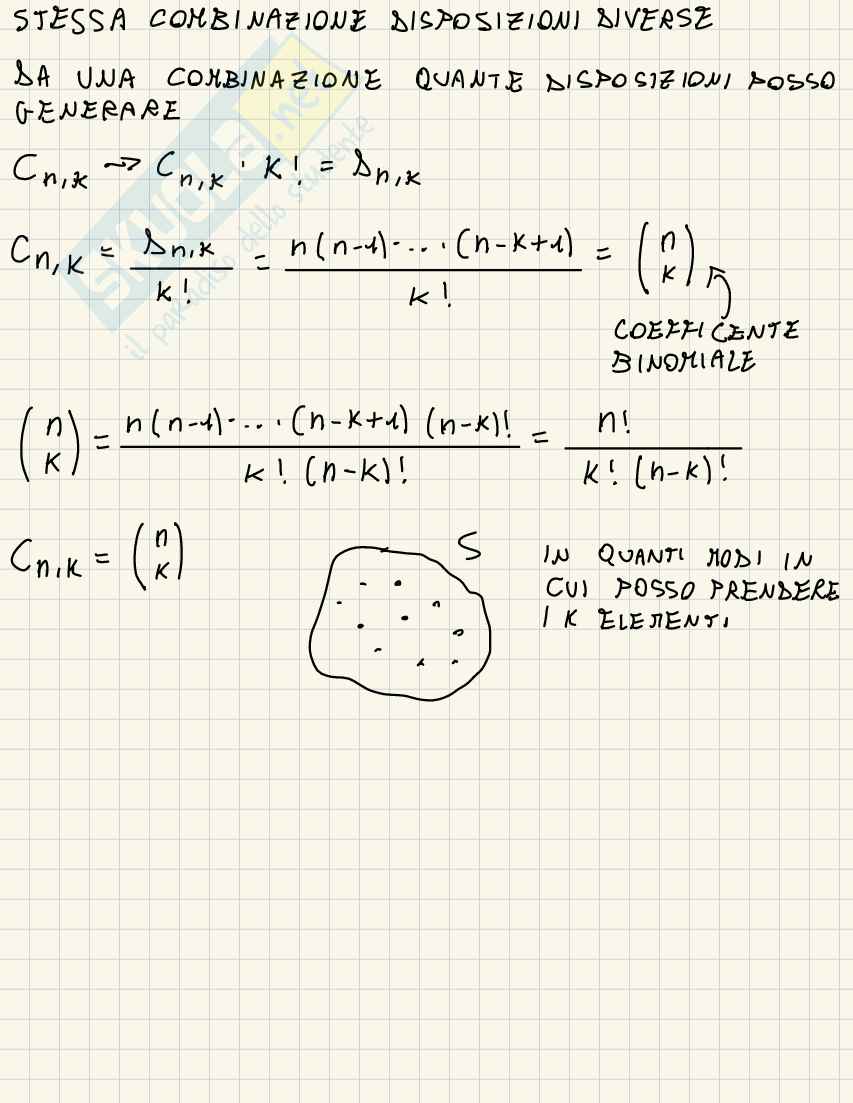 STESSA COMBINAZIONE DISPOSIZIONI DIVERSE
DA UNA COMBINAZIONE QUANTE DISPOSIZIONI POSSO
GENERARE
C_{n,k} → C_{n,k} · k! = D_{n,k}
C_{n,k} = D_{n,k} / k! = n(n-1)·...·(n-k+1) / k! = (n k)
COEFFICENTE
BINOMIALE
(n k) = n(n-1)·...·(n-k+1)(n-k)! / k!(n-k)! = n! / k!(n-k)!
C_{n,k} = (n k)
S
IN QUANTI MODI IN
CUI POSSO PRENDERE
I K ELEMENTI
SKUOLA.net
il paradiso dello studente